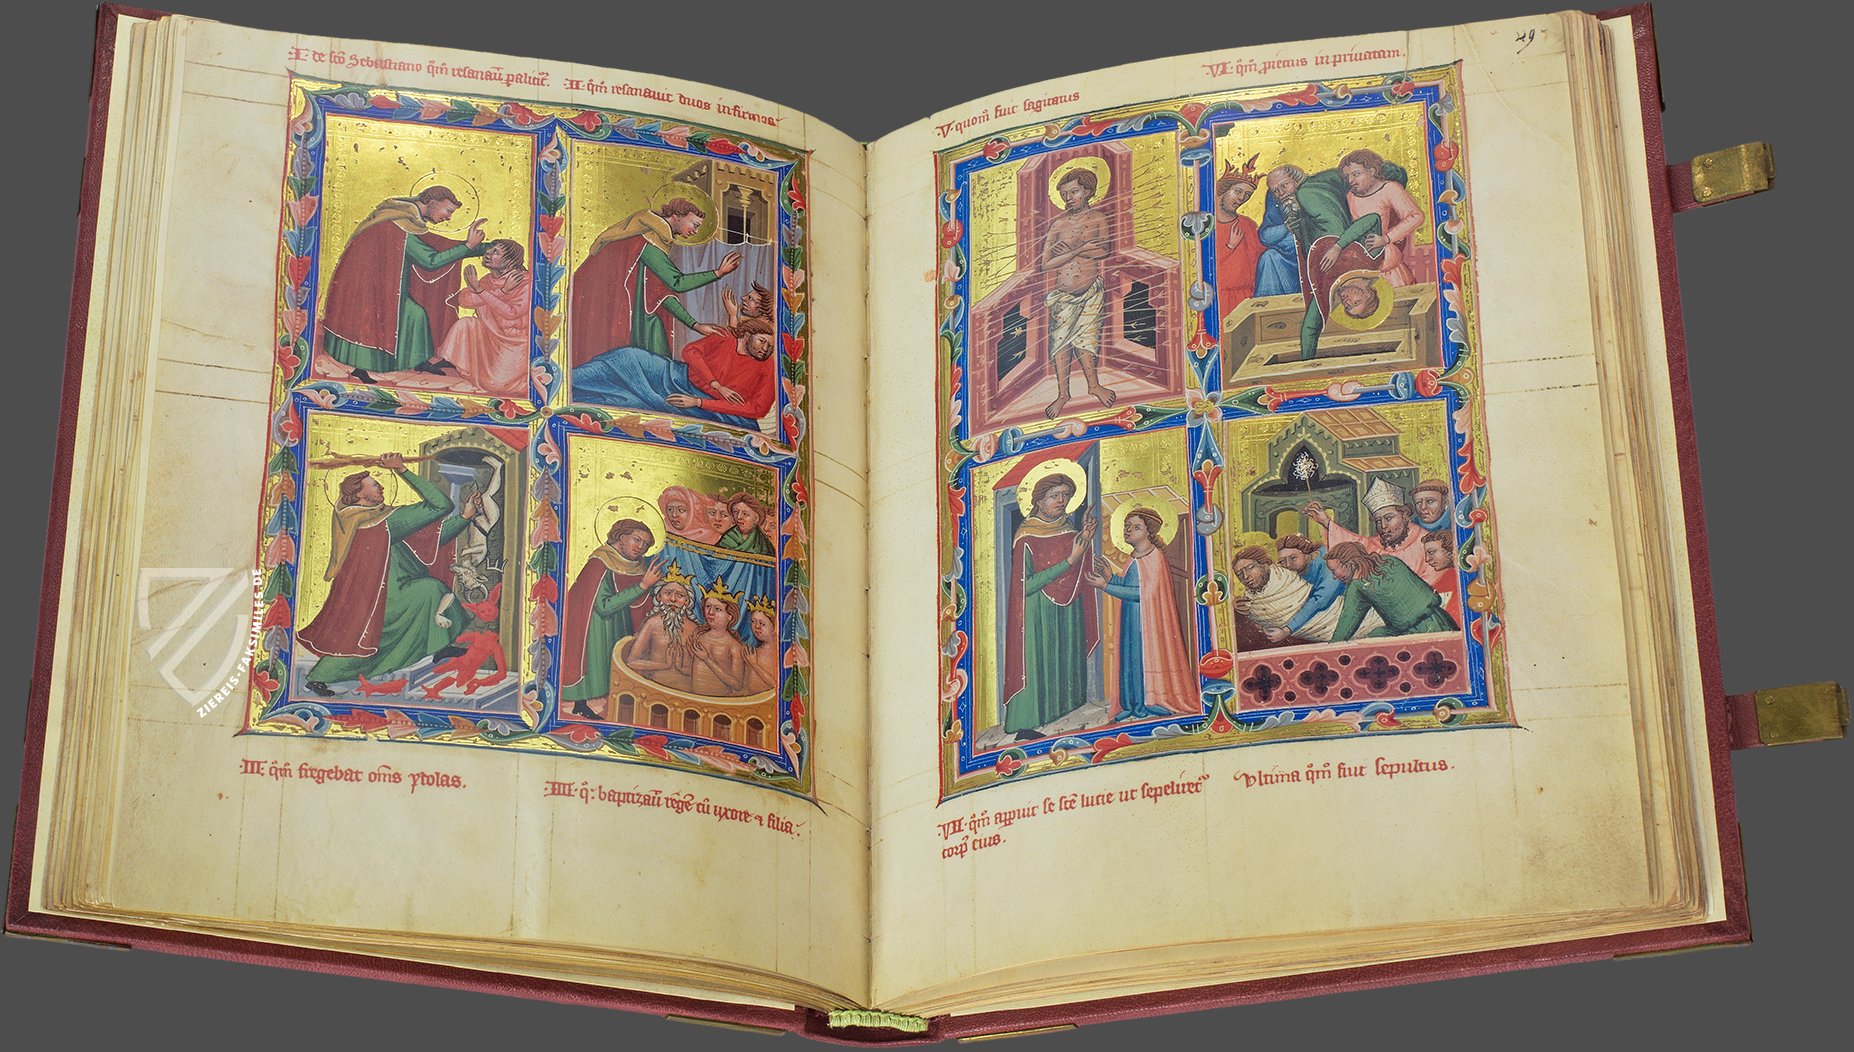 I· de sc̄o Sebastiano qm̄ resanau̅ paliticȝ.
II· qm̄ resanauit duos infirmos
III· qm̄ fregebat om̄s ydolas.
IIII· q̄· baptizau̅ regē cū uxore ⁊ filia·
V· quom̄ fuit sagitatus
VI· qm̄ proiectus in priuatam.
49
VII· qm̄ apparuit se sc̄e lucie ut sepeliret
corpꝰ eius.
Vltima qm̄ fuit sepultus.
ZIEREIS-FAKSIMILES.DE